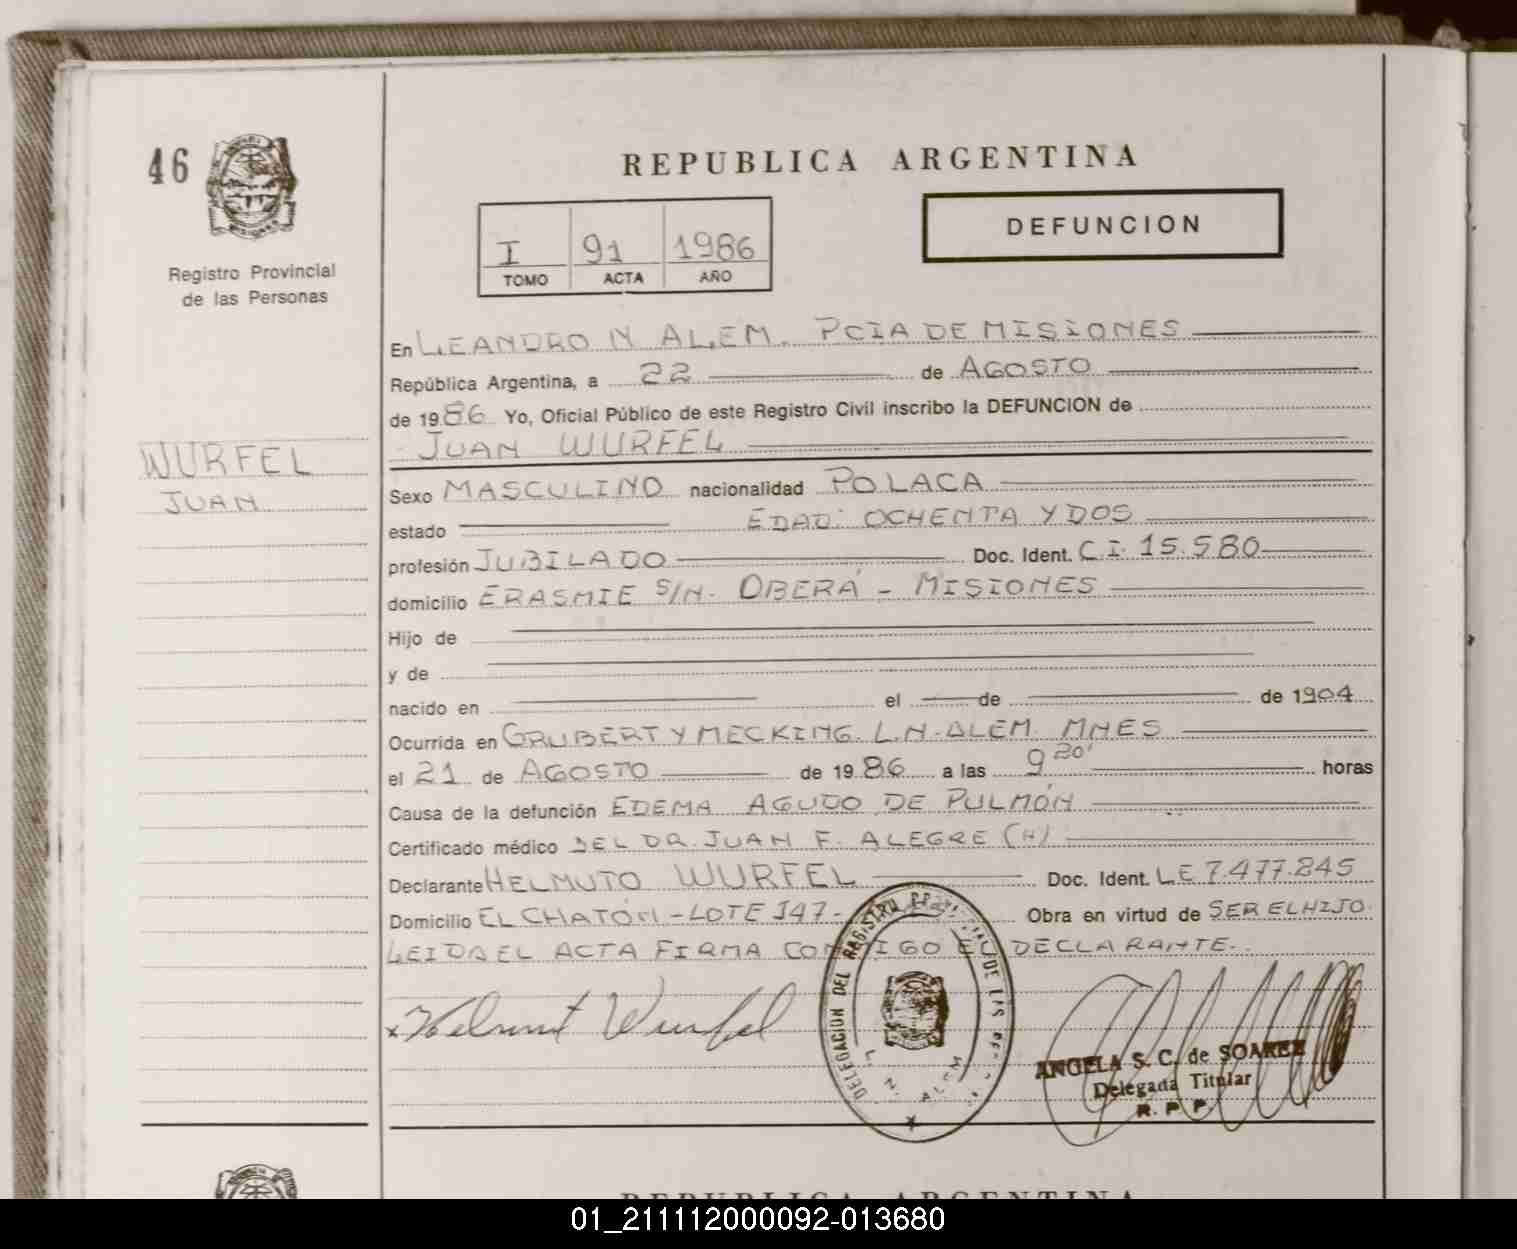 46
Registro Provincial
de las Personas
WURFEL
JUAN
REPUBLICA ARGENTINA
I 91 1986
TOMO ACTA AÑO
DEFUNCION
En LEANDRO N ALEM. PCIA DE MISIONES
República Argentina, a 22 de AGOSTO
de 1986 Yo, Oficial Público de este Registro Civil inscribo la DEFUNCION de
JUAN WURFEL
Sexo MASCULINO nacionalidad POLACA
estado EDAD: OCHENTA Y DOS
profesión JUBILADO Doc. Ident. C.I. 15.580
domicilio ERASMIE S/N. OBERÁ - MISIONES
Hijo de
y de
nacido en el de de 1904
Ocurrida en GRUBERT Y MECKING. L.N. ALEM. MNES
el 21 de AGOSTO de 1986 a las 9 horas
Causa de la defunción EDEMA AGUDO DE PULMÓN
Certificado médico DEL DR. JUAN F. ALEGRE (H)
Declarante HELMUTO WURFEL Doc. Ident. LE 7.477.845
Domicilio EL CHATÓN - LOTE 147- Obra en virtud de SER EL HIJO.
LEIDA EL ACTA FIRMA CONMIGO EL DECLARANTE.
x Helmut Wurfel
DELEGACION DEL REGISTRO DE LAS
L. N. ALEM
ANGELA S. C. de SOAREZ
Delegada Titular
R. P. P.
REPUBLICA ARGENTINA
01_211112000092-013680